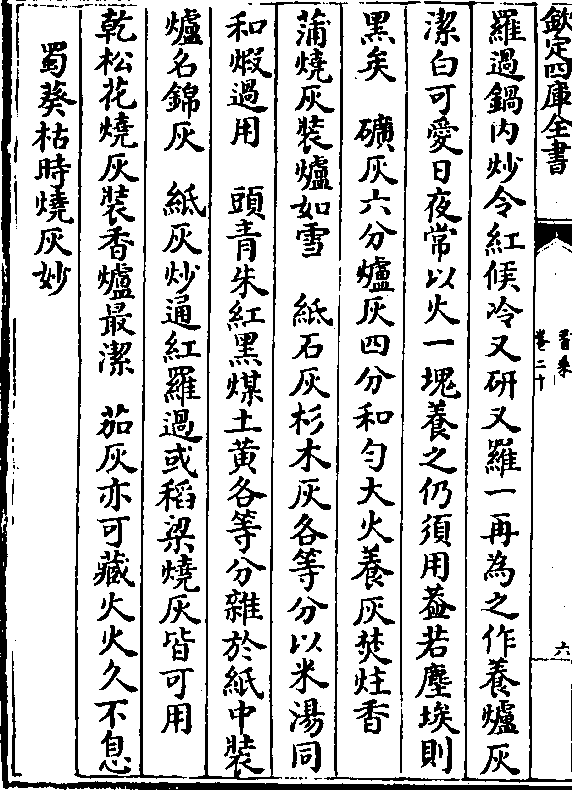 欽定四庫全書
香乘
卷二十
六
羅過鍋內炒令紅候冷又研又羅一再為之作養爐灰
潔白可愛日夜常以火一塊養之仍須用葢若塵埃則
黑矣　礦灰六分爐灰四分和勻大火養灰焚炷香
蒲燒灰裝爐如雪　紙石灰杉木灰各等分以米湯同
和煅過用　頭青朱紅黑煤土黃各等分雜於紙中裝
爐名錦灰　紙灰炒通紅羅過或稻梁燒灰皆可用
乾松花燒灰裝香爐最潔　茄灰亦可藏火火久不息
蜀葵枯時燒灰妙